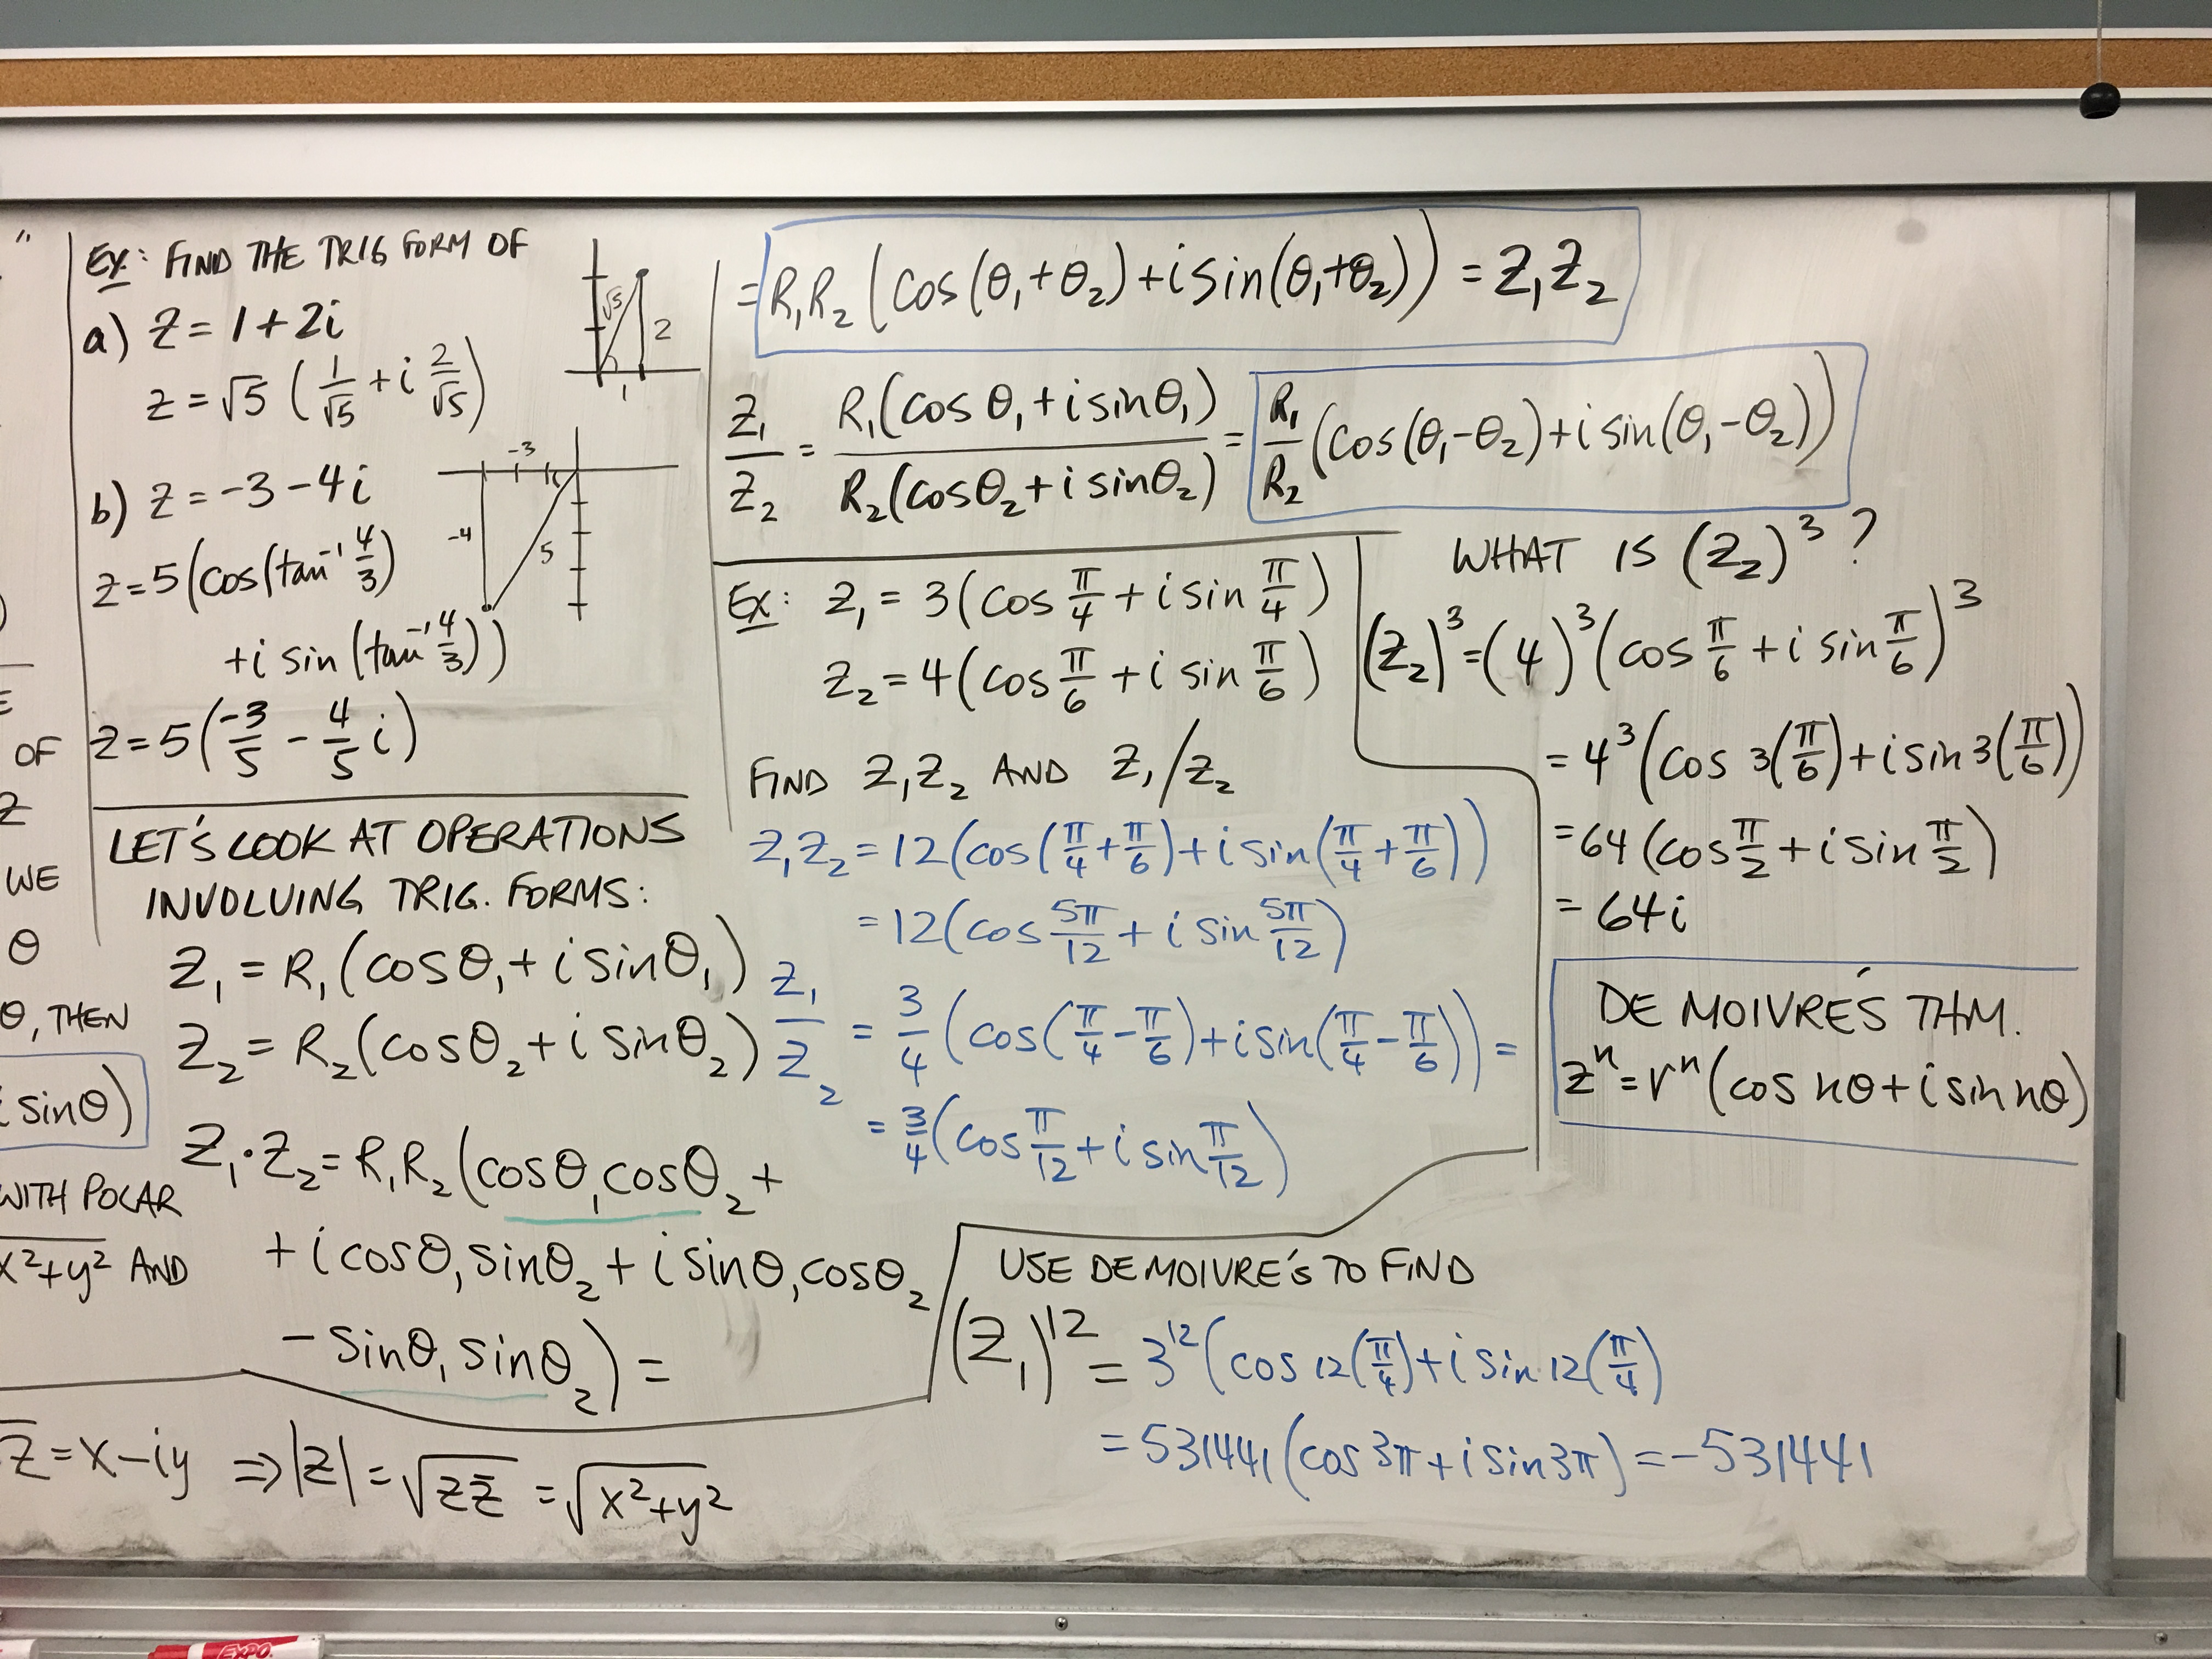 "
OF
Z
WE
θ
θ, THEN
sinθ)
WITH POLAR
x²+y² AND
z̅ = x-iy ⇒ |z| = √(z z̅) = √(x²+y²)
EX: FIND THE TRIG FORM OF
a) z = 1+2i
z = √5 (1/√5 + i 2/√5)
√5
2
1
b) z = -3-4i
z = 5(cos(tan⁻¹ 4/3)
+i sin(tan⁻¹ 4/3))
z = 5(-3/5 - 4/5 i)
-3
-4
5
LET'S LOOK AT OPERATIONS
INVOLVING TRIG. FORMS:
Z₁ = R₁(cosθ₁+i sinθ₁)
Z₂ = R₂(cosθ₂+i sinθ₂)
Z₁·Z₂ = R₁R₂(cosθ₁cosθ₂+
+i cosθ₁sinθ₂+i sinθ₁cosθ₂
-sinθ₁sinθ₂) =
= R₁R₂(cos(θ₁+θ₂)+i sin(θ₁+θ₂)) = Z₁Z₂
Z₁/Z₂ = R₁(cosθ₁+i sinθ₁)/R₂(cosθ₂+i sinθ₂) = R₁/R₂ (cos(θ₁-θ₂)+i sin(θ₁-θ₂))
EX: Z₁ = 3(cos π/4 + i sin π/4)
Z₂ = 4(cos π/6 + i sin π/6)
FIND Z₁Z₂ AND Z₁/Z₂
Z₁Z₂ = 12(cos(π/4+π/6)+i sin(π/4+π/6))
= 12(cos 5π/12 + i sin 5π/12)
Z₁/Z₂ = 3/4 (cos(π/4-π/6)+i sin(π/4-π/6)) =
= 3/4(cos π/12 + i sin π/12)
WHAT IS (Z₂)³?
(Z₂)³ = (4)³(cos π/6 + i sin π/6)³
= 4³(cos 3(π/6)+i sin 3(π/6))
= 64(cos π/2 + i sin π/2)
= 64i
DE MOIVRE'S THM.
zⁿ = rⁿ(cos nθ+i sin nθ)
USE DEMOIVRE'S TO FIND
(Z₁)¹² = 3¹²(cos 12(π/4)+i sin 12(π/4)
= 531441(cos 3π+i sin 3π) = -531441
EXPO